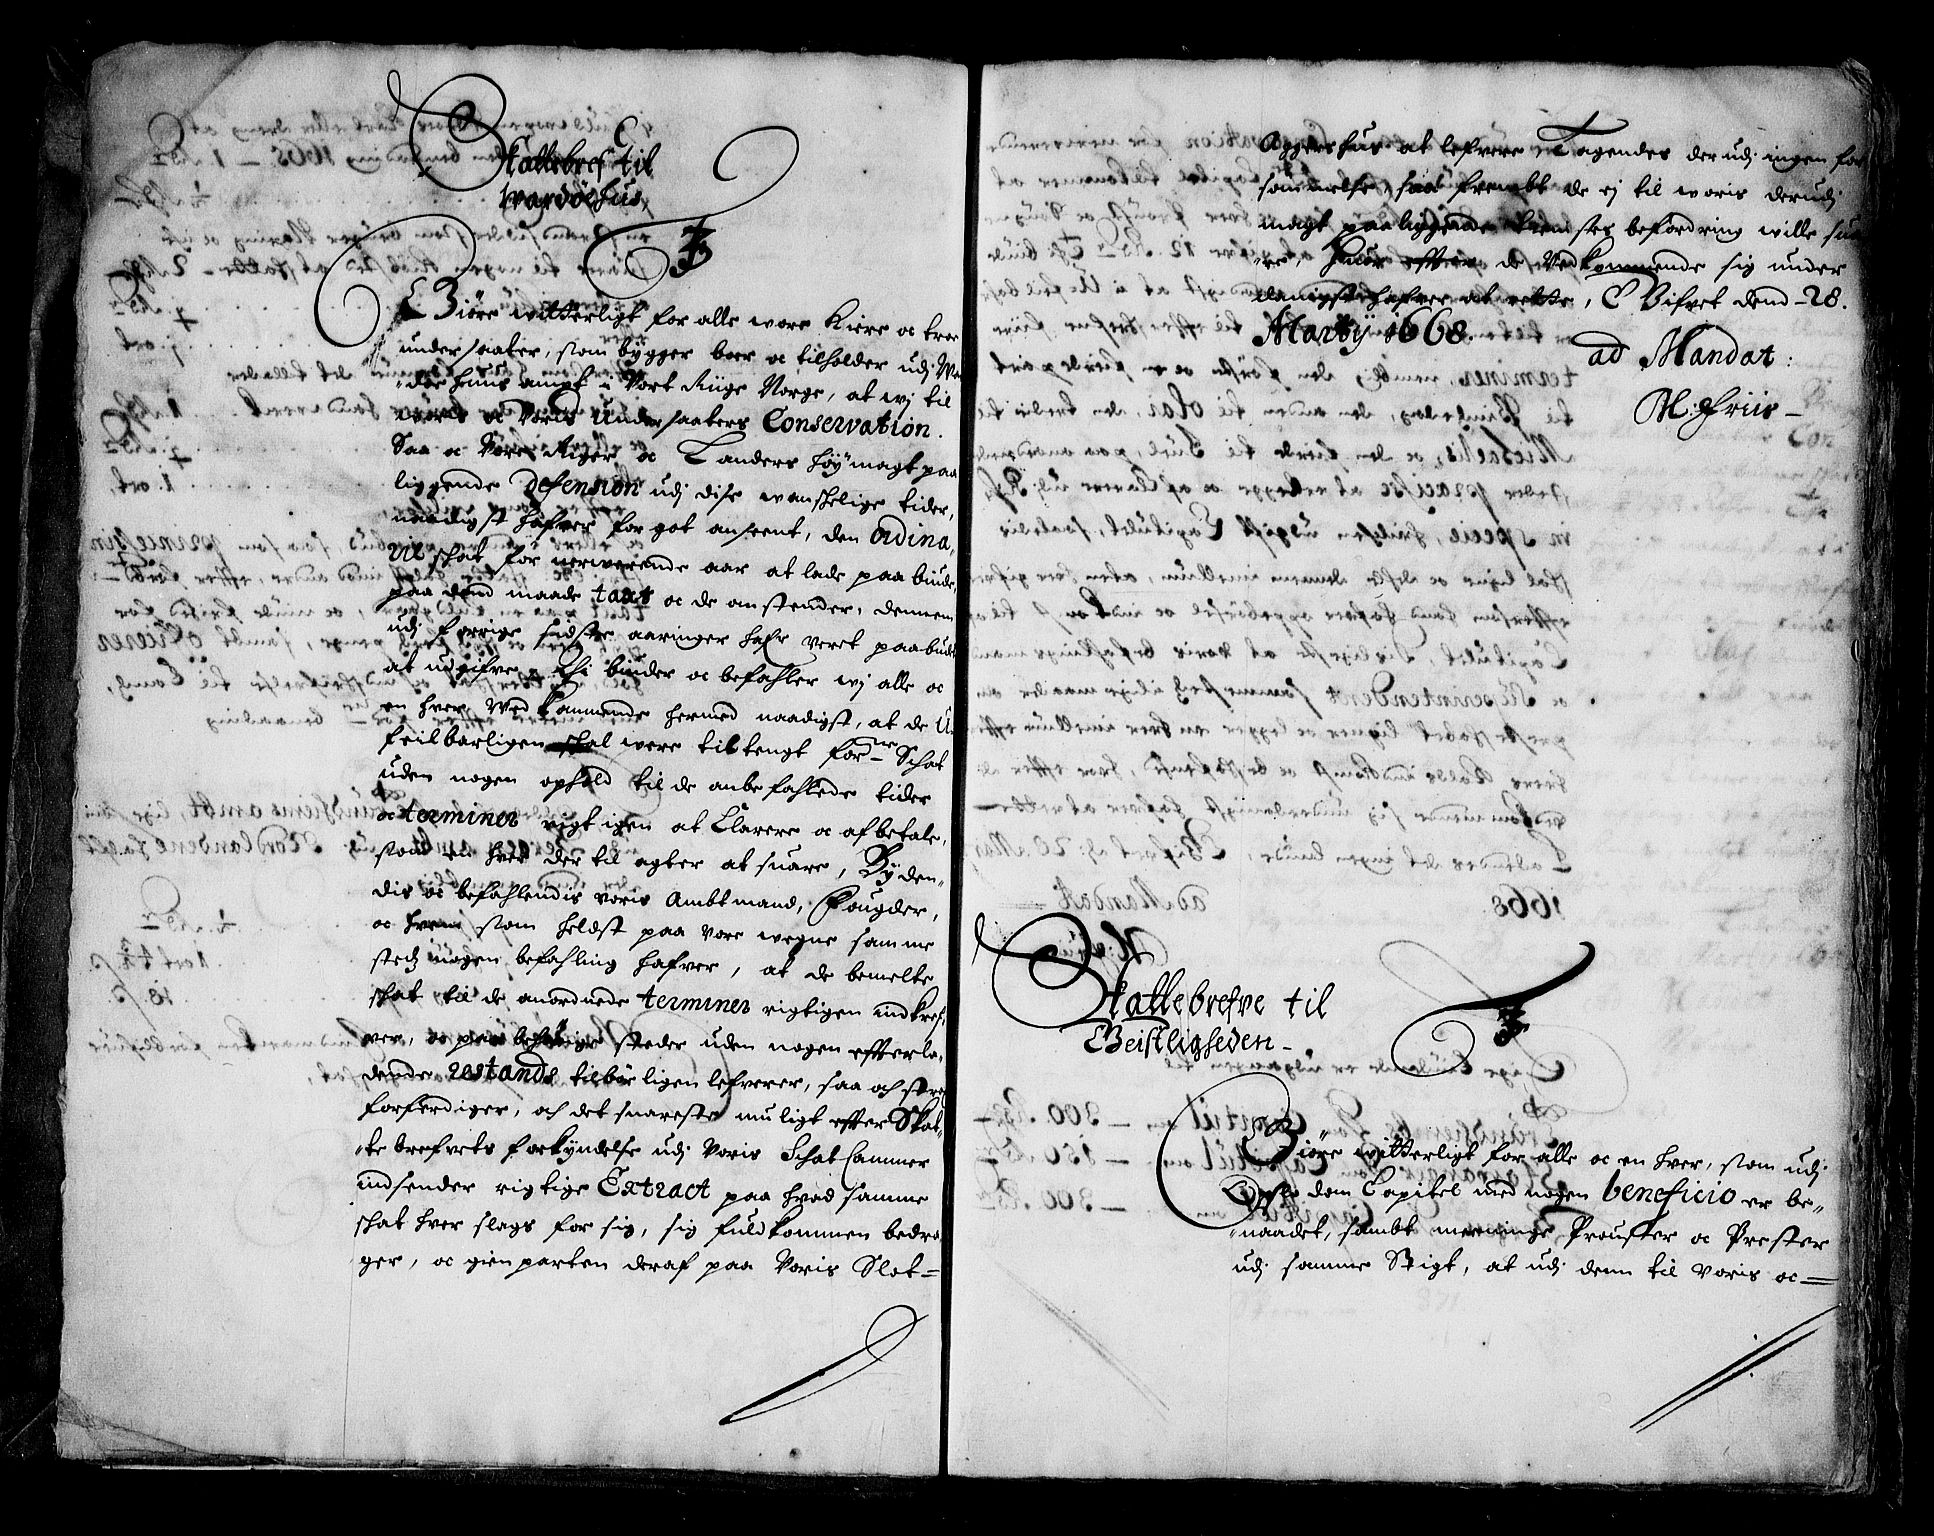 Skattebref til
Wardöehus,
Giöre witterligt for alle wore Kiere oc troe
undersaater, som bygger boer oc tilholder udj War
döe huus ampt i Vort Rige Norge, at wj til
woris oc Voris Undersaaters Conservation.
Saa oc Vore Riger oc Landers höy magt paa
liggende defension udj disse wanskelige tider,
naadigst hafver for got anseent, den ordina,
rie schat for nerwerende aar at lade paabiude,
paa dend maade taxt oc de anstender, dennem
udj forrige sidste aaringer hafr veret paabudt
at udgifve, Thi biuder oc befahler wj alle oc
en hver Wed kommende hermed naadigst, at de U,
feilbarligen schal were tiltengt forne Schat
uden nogen ophold til de anbefahlede tider
oc terminer rigtigen at Clarere oc afbetale,
som en hver der til agter at suare, Byden,,
dis oc befahlendis voris Ambtmand, Fougder,
oc hvem som heldst paa vore wegne samme
stedz nogen befahling hafver, at de bemelte
schat til de anordnede terminer rigtigen indkref,
ver, oc paa behörige steder uden nogen efterla,
dende restands tilbörligen lefverer, saa och strax
forferdiger, och det snareste muligt efter Skat,
,,te brefvets forkyndelse udj Voris Schat Cammer
indsender rigtige Extract paa hvad samme
schat hver slags for sig, sig fuldkommen bedra,
ger, oc gienparten deraf paa Voris Slot=
Aggershus at lefvere, Tagendes der udj ingen for
sömmelse, saa frembt de ej til woris derudj
magt paaliggende tienistes befordring wille sua
,,re, Huor efter de Vedkommende sig under
danigst hafver at rette, Gifvet dend 28.
Martij 1668.
ad Mandat:
M. Friis
Skattebrefve til
Geistligheden
Giöre witterligt for alle oc en hver, som udj
Opslo dom Capitel med nogen beneficio er be,,
,,naadet, sambt meninge Prouster oc Prester
udj samme Stigt, at udj denn til Voris oc=